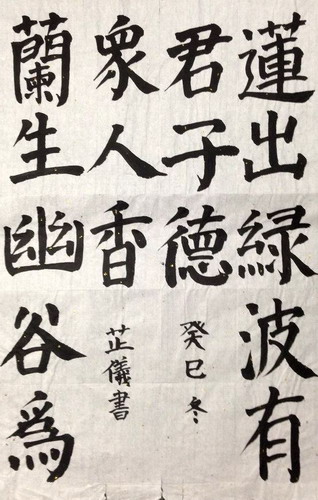 蓮出緑波有
君子德
癸巳冬
蘭生幽谷爲
衆人香
芷儀書